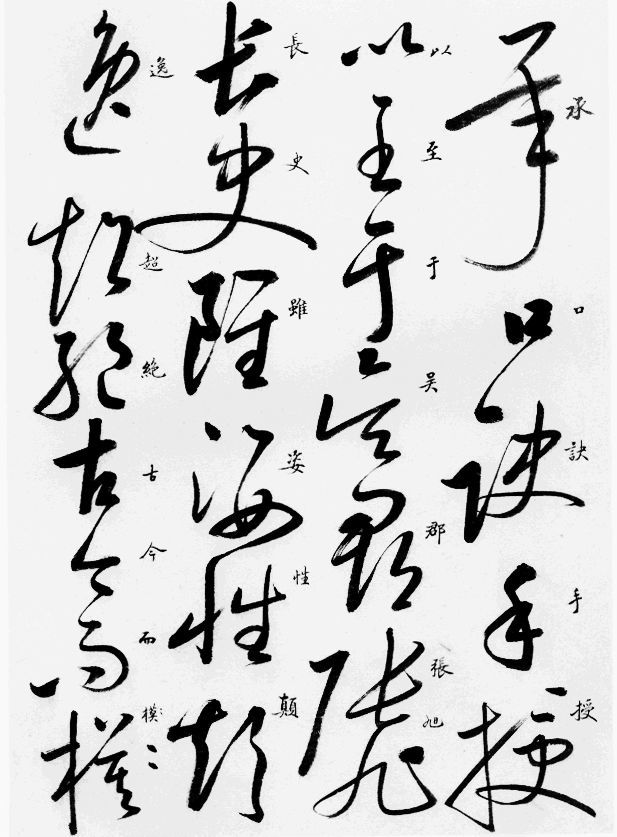 承口訣手授
以至于吴郡張旭
長史雖姿性顛
逸超絕古今而模